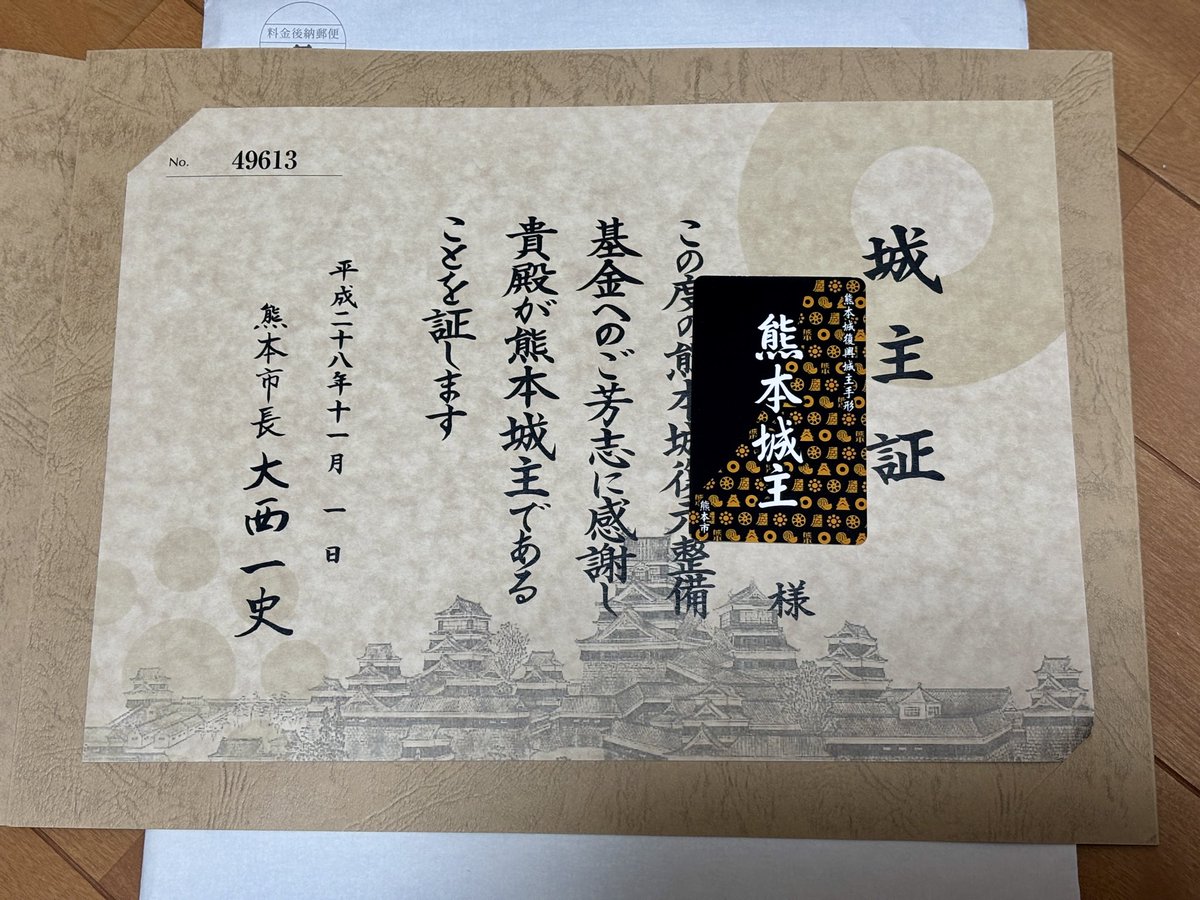 料金後納郵便
No. 49613
城主証
様
この度の熊本城復元整備
基金へのご芳志に感謝し
貴殿が熊本城主である
ことを証します
平成二十八年十一月 一日
熊本市長 大西一史
熊本城復興城主手形
熊本城主
熊本市